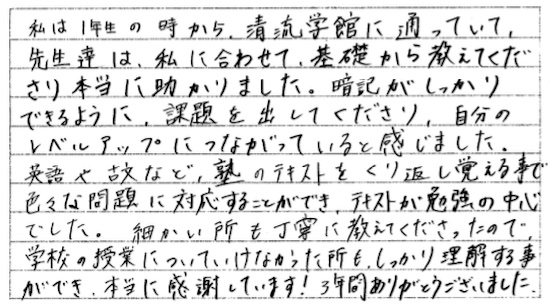 私は1年生の時から、清流学館に通っていて、
先生達は、私に合わせて、基礎から教えてくだ
さり本当に助かりました。暗記がしっかり
できるように、課題を出してくださり、自分の
レベルアップにつながっていると感じました。
英語や古文など、塾のテキストをくり返し覚える事で
色々な問題に対応することができ、テキストが勉強の中心
でした。細かい所も丁寧に教えてくださったので、
学校の授業についていけなかった所も、しっかり理解する事
ができ、本当に感謝しています!3年間ありがとうございました。